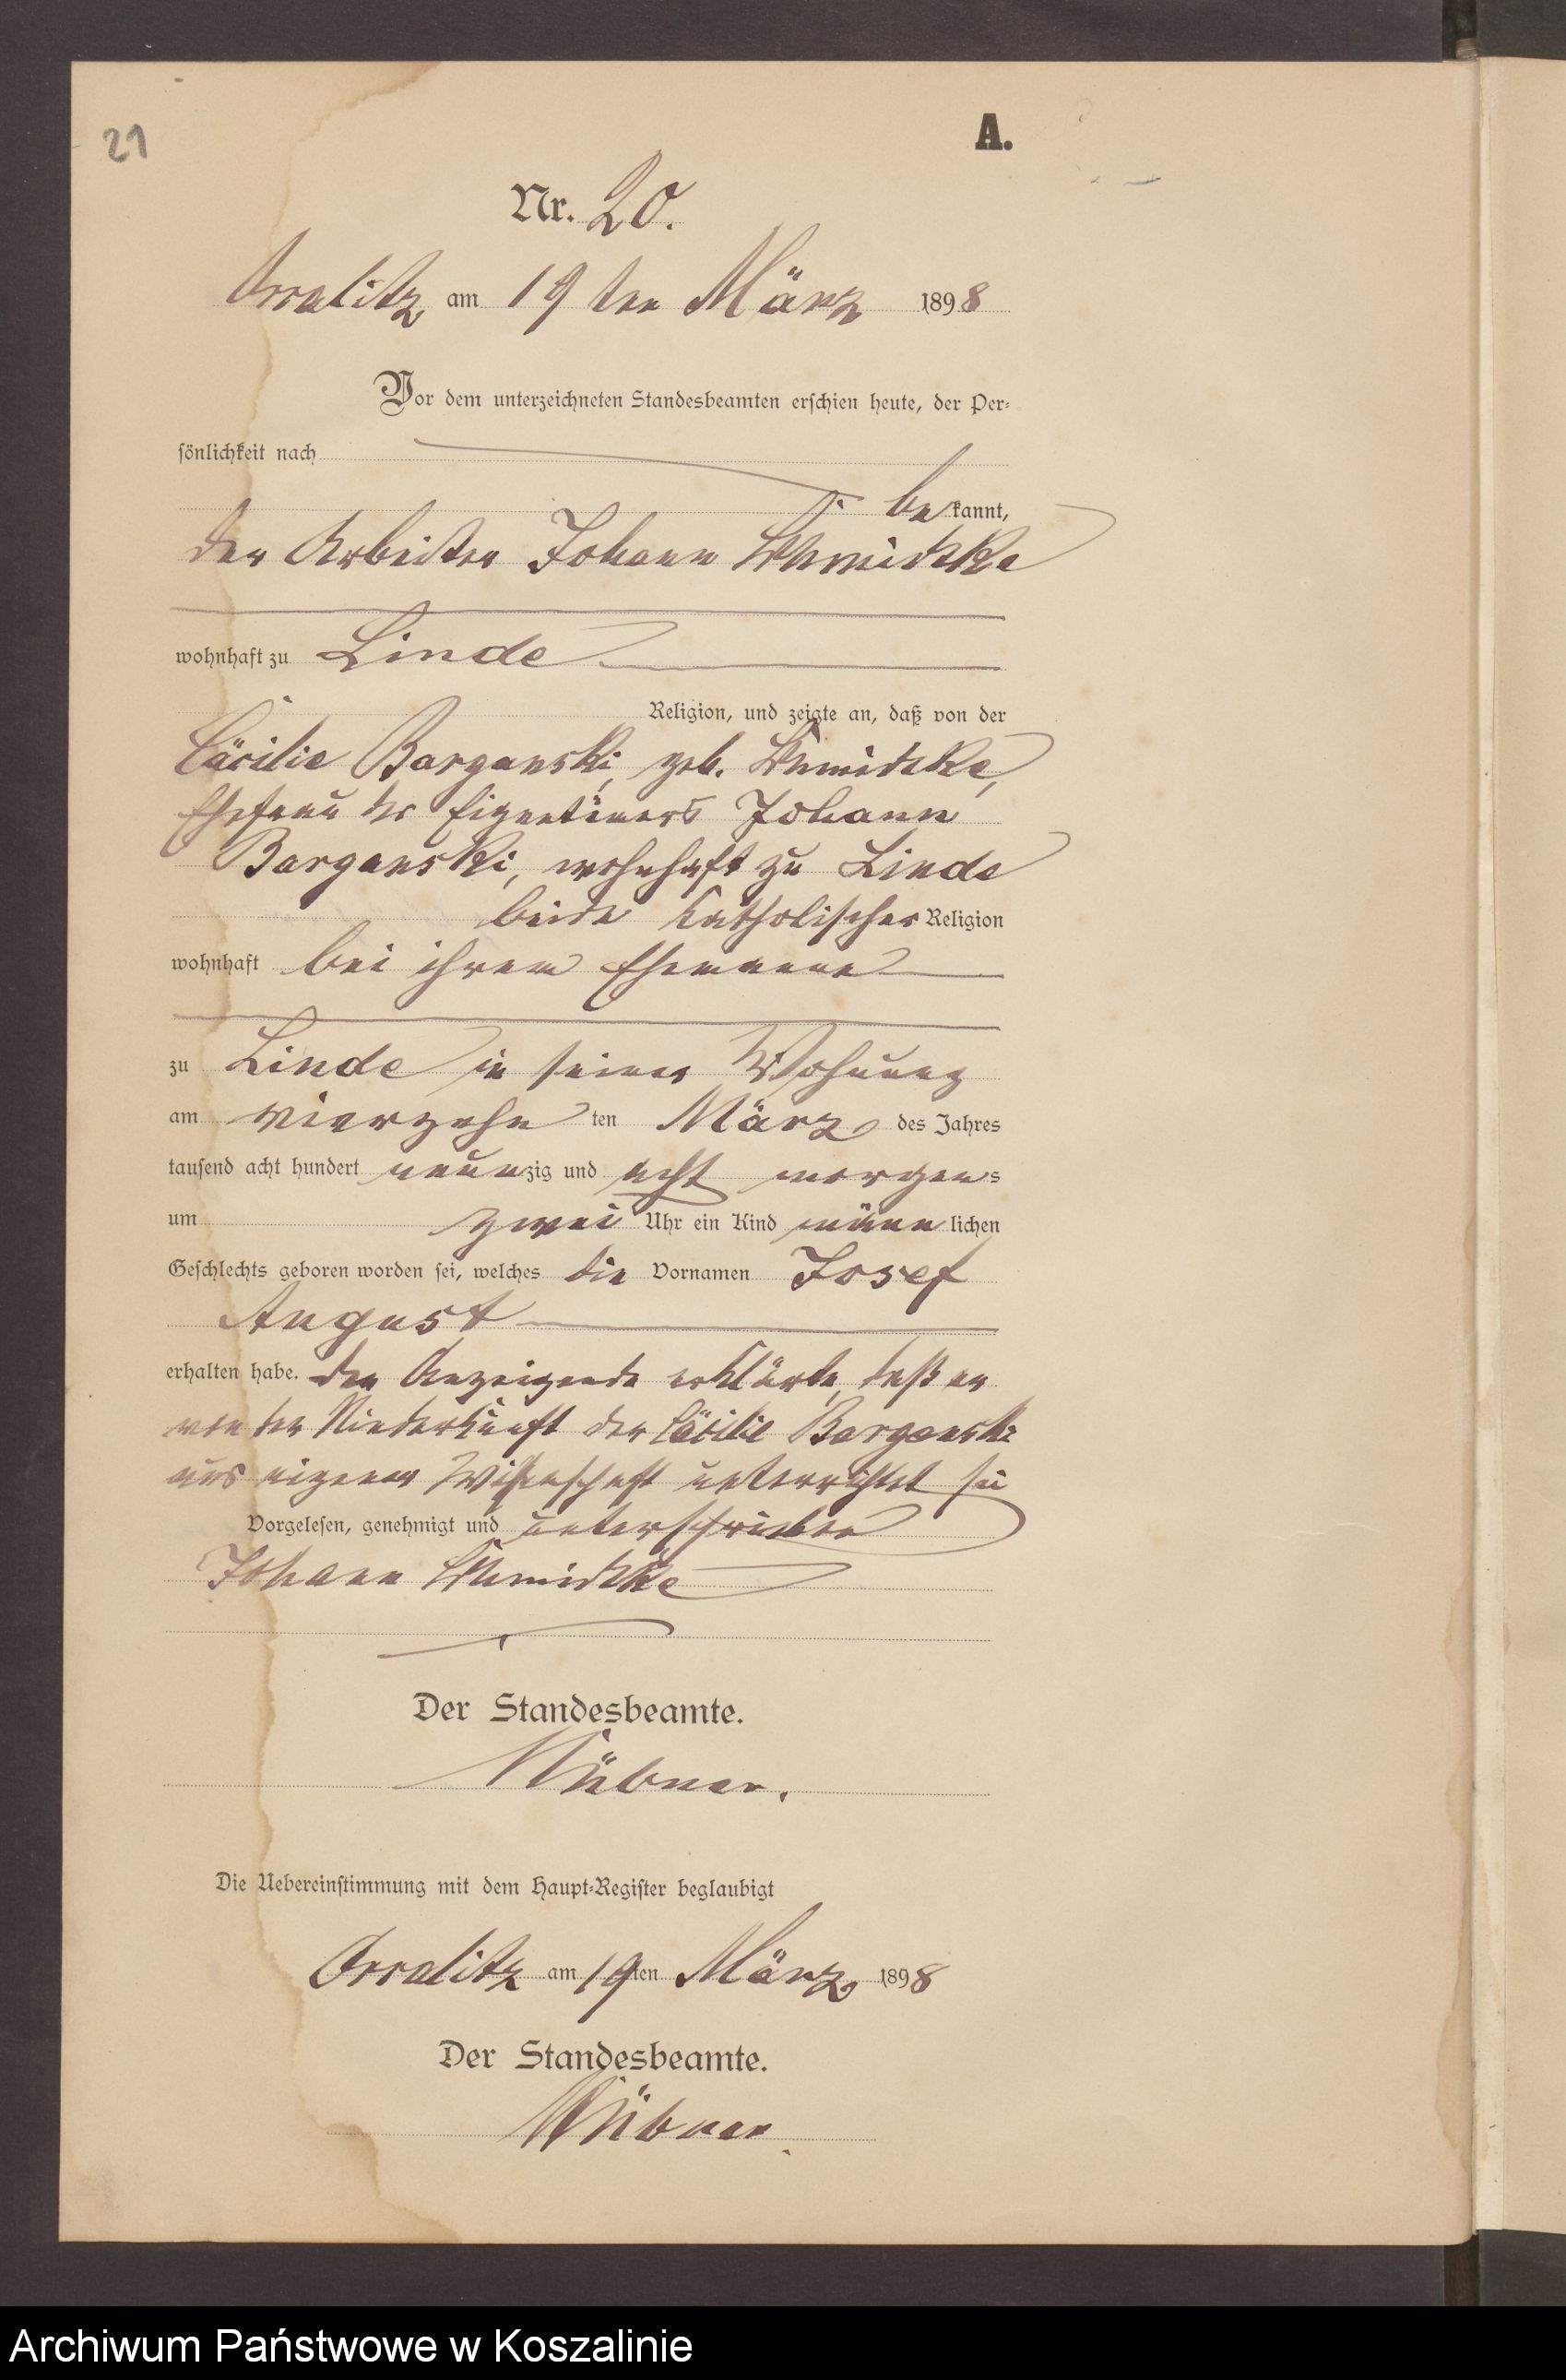 21
A.
Nr. 20.
am 19ten März 1898
Vor dem unterzeichneten Standesbeamten erschien heute, der Per-
sönlichkeit nach
bekannt,
der Arbeiter Johann Schmidtke
wohnhaft zu Linde
Religion, und zeigte an, daß von der
Cäcilie Barganski, geb. Schmidtke,
Ehefrau des Eigentümers Johann
Barganski, wohnhaft zu Linde
beide katholischer Religion
wohnhaft bei ihrem Ehemanne
zu Linde in seiner Wohnung
am vierzehn ten März des Jahres
tausend acht hundert neunzig und acht morgens
um zwei Uhr ein Kind männlichen
Geschlechts geboren worden sei, welches die Vornamen Josef
August
erhalten habe. Der Anzeigende erklärte, daß er
von der Niederkunft der Cäcilie Barganski
aus eigener Wissenschaft unterrichtet sei
Vorgelesen, genehmigt und unterschrieben
Johann Schmidtke
Der Standesbeamte.
Die Uebereinstimmung mit dem Haupt-Register beglaubigt
am 19ten März 1898
Der Standesbeamte.
Archiwum Państwowe w Koszalinie